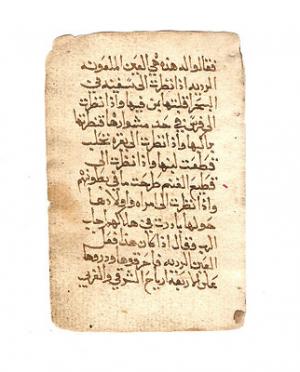 فقالوا له هذه هي العين الملعونه
الرديه اذا نظرت الى سفينه في
البحر قلبتها بمن فيها واذا نظرت
الى فرس في حد مشوارها قنطرتها
براكبها واذا نظرت الى بقره تحلب
قطعت لبنها واذا نظرت الى
قطيع الغنم طرحتما في بطونهم
واذا نظرت الى مراه واولادها
حولها بادرت في هلاكهم اجاب
الرب فقال اذا كان هذا فعل
العين الرديه فاحرقوها ودروها
على الاربعة ارياح الشرقي والغربي